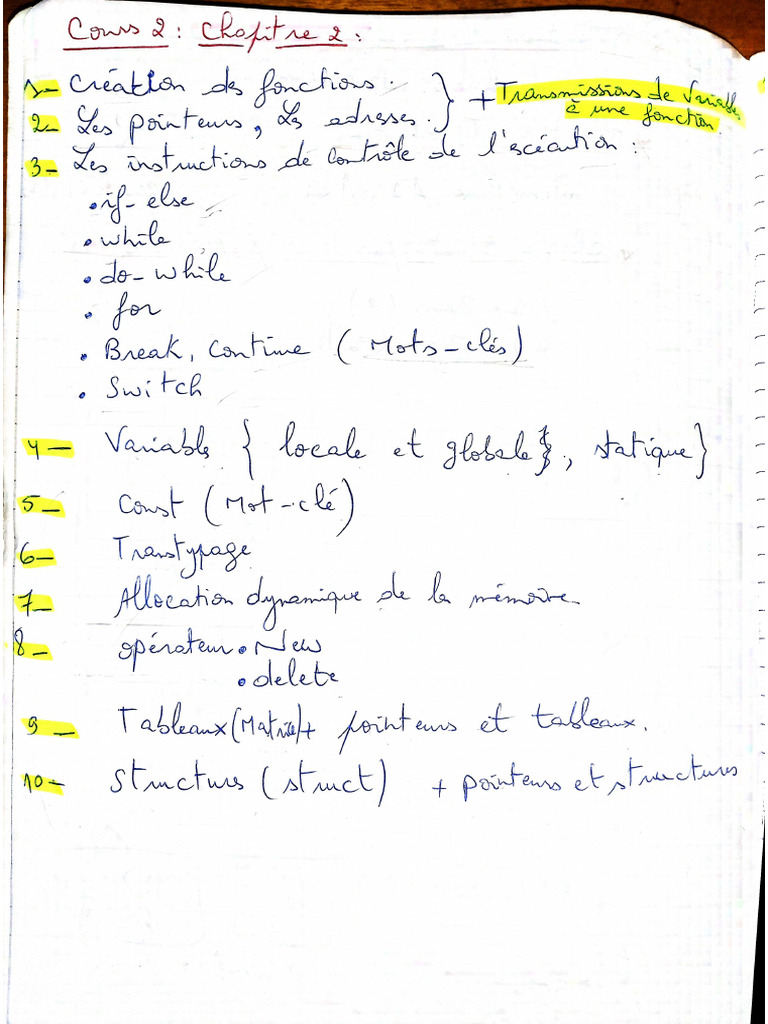 Cours 2 : Chapitre 2 :
1- Création des fonctions. } + Transmissions de Variable
2- Les pointeurs, Les adresses. } à une fonction
3- Les instructions de contrôle de l'exécution :
• if-else
• while
• do-while
• for
• Break, Continue (Mots-clés)
• Switch
4- Variable { locale et globale, statique }
5- Const (Mot-clé)
6- Transtypage
7- Allocation dynamique de la mémoire
8- opérateur • New
• delete
9- Tableaux (Matrice) + pointeurs et tableaux.
10- Structures (struct) + pointeurs et structures